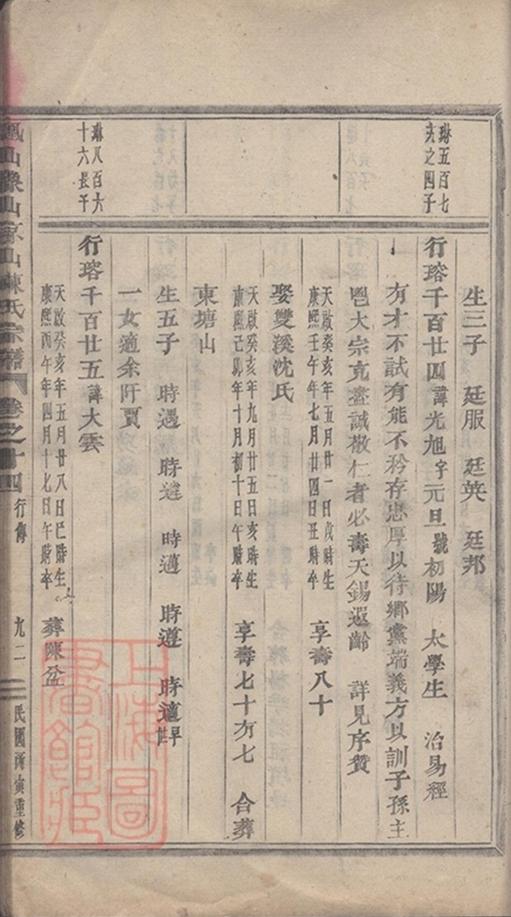 生三子 廷服 廷英 廷邦
琳五百七
夫之四子
行瑢千百廿四諱光旭字元旦號初陽 太學生 治易經
有才不試有能不矜存忠厚以待鄉黨端義方以訓子孫主
鬯大宗克盡誠敬仁者必壽天錫遐齡 詳見序贊
天啟癸亥年五月廿一日戌時生
康熙壬午年七月廿四日丑時卒
享壽八十
娶雙溪沈氏
天啟癸亥年九月廿五日亥時生
康熙己卯年十月初十日子時卒
享壽七十有七 合葬
東塘山
生五子 時遇 時遴 時邁 時遵 時適早世
一女適余阡賈
琳八百六
十六長子
行瑢千百廿五諱大雲
天啟癸亥年五月廿八日巳時生
康熙丙午年四月十七日午時卒
葬陳盆
山象山 山陳氏宗譜 卷之十四 行傳 九二 民國丙寅重修
上海圖書館藏